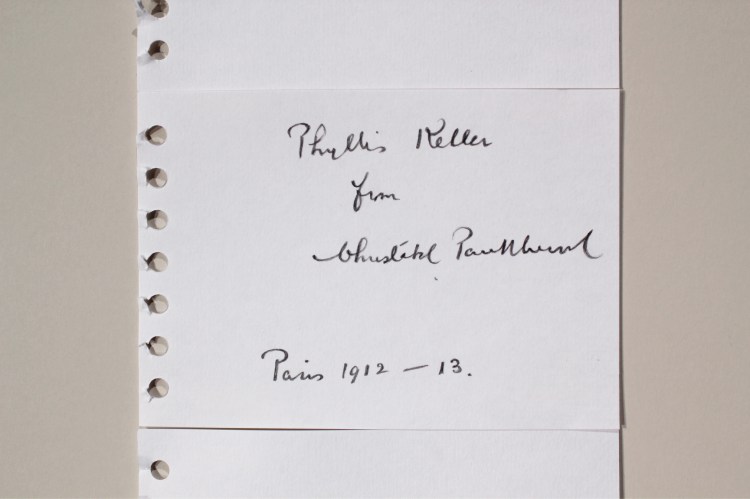 Phyllis Keller
from
Christabel Pankhurst
Paris 1912 — 13.